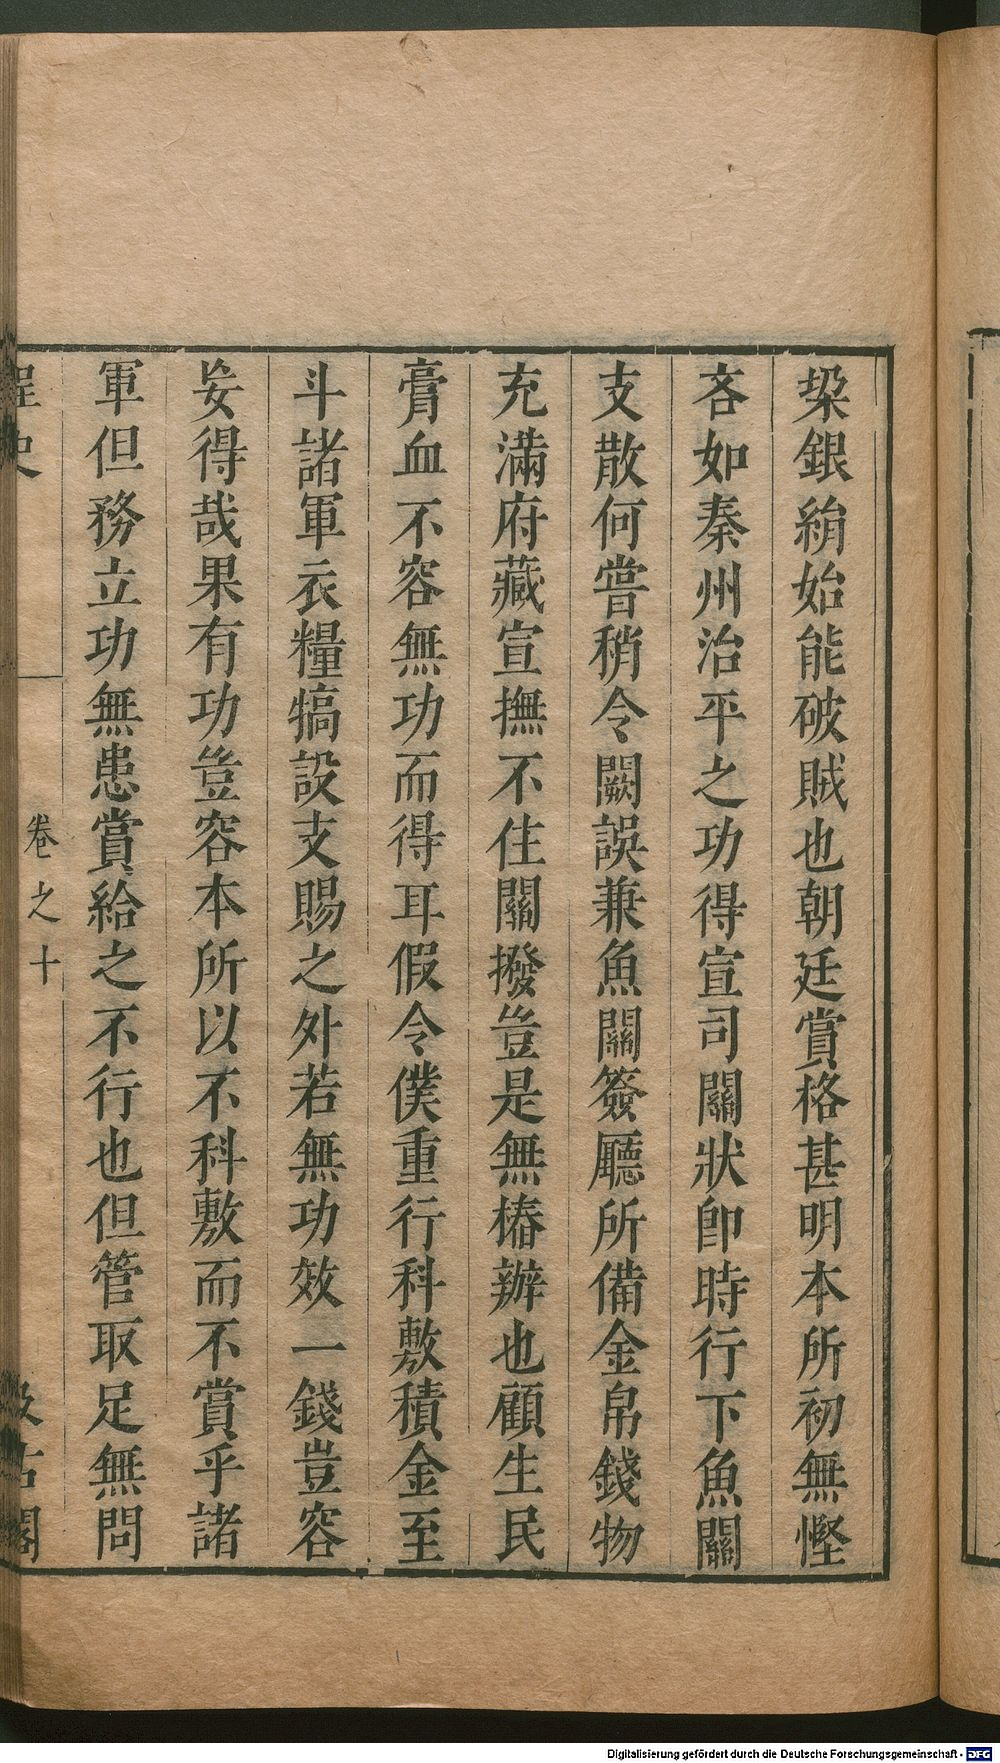 桬銀絹始能破賊也朝廷賞格甚明本所初無慳
吝如秦州治平之功得宣司關狀卽時行下魚關
支散何嘗稍令闕誤兼魚關簽廳所備金帛錢物
充滿府藏宣撫不住關撥豈是無樁辦也顧生民
膏血不容無功而得耳假令僕重行科敷積金至
斗諸軍衣糧犒設支賜之外若無功效一錢豈容
妄得哉果有功豈容本所以不科敷而不賞乎諸
軍但務立功無患賞給之不行也但管取足無問
桯史
卷之十
汲古閣
Digitalisierung gefördert durch die Deutsche Forschungsgemeinschaft - DFG